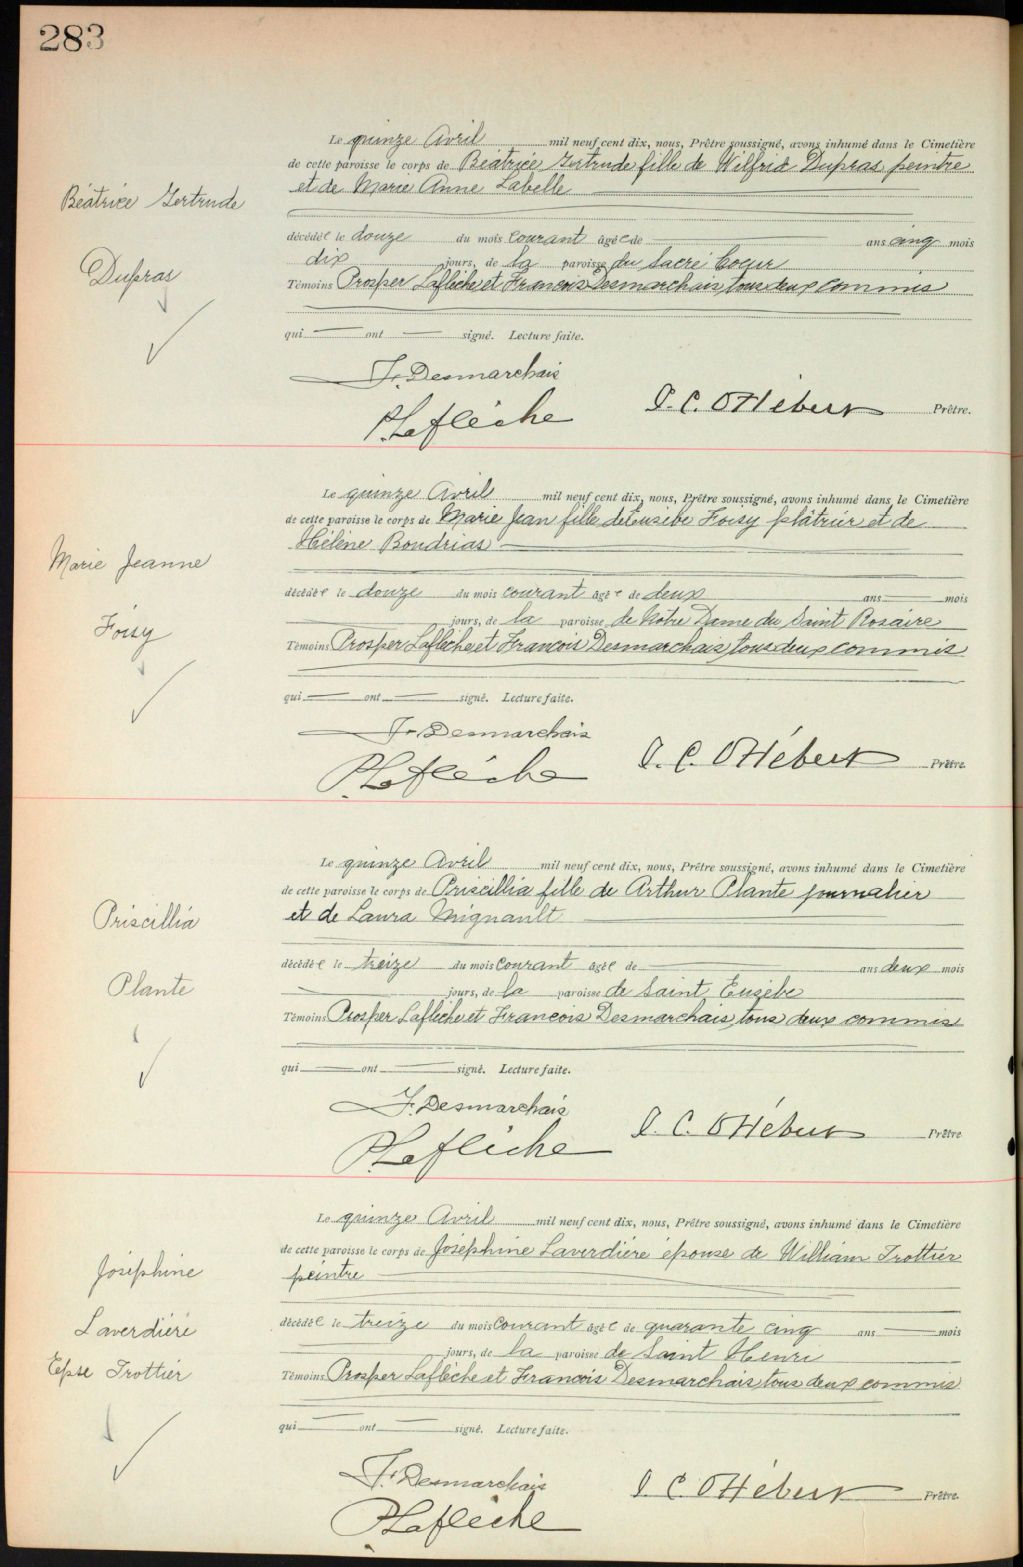 283
Béatrice Gertrude
Dupras
Le quinze Avril mil neuf cent dix, nous, Prêtre soussigné, avons inhumé dans le Cimetière
de cette paroisse le corps de Béatrice Gertrude fille de Wilfrid Dupras peintre
et de Marie Anne Labelle
décédée le douze du mois courant âgée de ans cinq mois
dix jours, de la paroisse du Sacré Coeur
Témoins Prosper Laflèche et Francois Desmarchais, tous deux commis
qui ont signé. Lecture faite.
F. Desmarchais
P. Laflèche
J. C. O Hébert Prêtre.
Marie Jeanne
Foisy
Le quinze Avril mil neuf cent dix, nous, Prêtre soussigné, avons inhumé dans le Cimetière
de cette paroisse le corps de Marie Jean fille de Eusèbe Foisy plâtrier et de
Hélène Boudrias
décédée le douze du mois courant âgée de deux ans mois
jours, de la paroisse de Notre Dame du Saint Rosaire
Témoins Prosper Laflèche et Francois Desmarchais, tous deux commis
qui ont signé. Lecture faite.
F. Desmarchais
P. Laflèche
J. C. O Hébert Prêtre.
Priscillia
Plante
Le quinze Avril mil neuf cent dix, nous, Prêtre soussigné, avons inhumé dans le Cimetière
de cette paroisse le corps de Priscillia fille de Arthur Plante journalier
et de Laura Mignault
décédée le treize du mois courant âgée de ans deux mois
jours, de la paroisse de Saint Eusèbe
Témoins Prosper Laflèche et Francois Desmarchais, tous deux commis
qui ont signé. Lecture faite.
F. Desmarchais
P. Laflèche
J. C. O Hébert Prêtre
Joséphine
Laverdière
Epse Trottier
Le quinze Avril mil neuf cent dix, nous, Prêtre soussigné, avons inhumé dans le Cimetière
de cette paroisse le corps de Joséphine Laverdière épouse de William Trottier
peintre
décédée le treize du mois courant âgée de quarante cinq ans mois
jours, de la paroisse de Saint Henri
Témoins Prosper Laflèche et Francois Desmarchais, tous deux commis
qui ont signé. Lecture faite.
F. Desmarchais
P. Laflèche
J. C. O Hébert Prêtre.